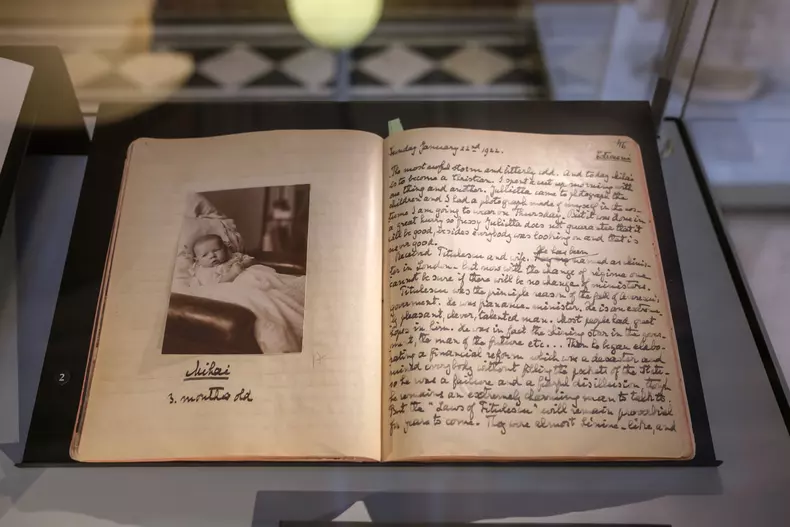 2
Mihai
3. months old
46
Cotroceni
Sunday January 22nd 1922.
The most awful storm and bitterly cold. And today Mihai
is to become a Christian. I spent a whole morning with
one thing and another. Julietta came to photograph the
children and I had a photograph made of myself in the cos-
tume I am going to wear on Thursday. But it was done in
a great hurry so fussy Julietta does not guarantee that it
will be good, besides everybody was looking on and that is
never good.
Received Titulescu and wife. He has been named as minis-
ter in London - but now with the change of régime one
cannot be sure if there will be no change of ministers.
Titulescu was the principle reason of the fall of Averescu's
government. He was finance minister. He is an extreme-
ly pleasant, clever, talented man. Most people had great
hopes in him. He was in fact the shining star in the govern-
ment, the man of the future etc... Then he began elabo-
rating a financial reform which was a disaster and
ruined everybody without filling the pockets of the State -
so he was a failure and a painful disillusion, though
he remains an extremely charming man to talk to.
But the "Laws of Titulescu" will remain proverbial
for years to come. They were almost Lenine-like, and